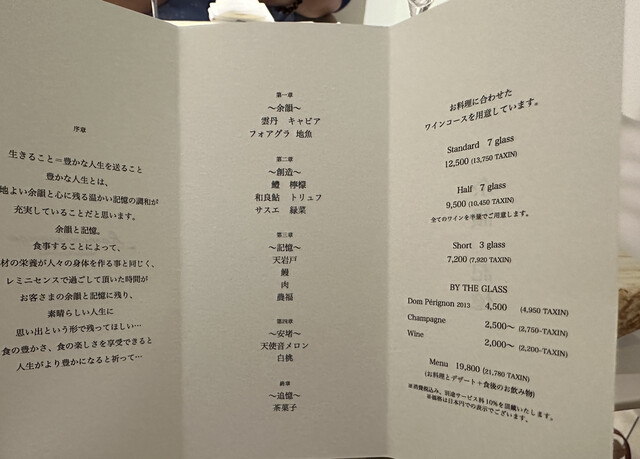 序章
生きること＝豊かな人生を送ること
豊かな人生とは、
地よい余韻と心に残る温かい記憶の調和が
充実していることだと思います。
余韻と記憶。
食事することによって、
材の栄養が人々の身体を作る事と同じく、
レミニセンスで過ごして頂いた時間が
お客さまの余韻と記憶に残り、
素晴らしい人生に
思い出という形で残ってほしい…
食の豊かさ、食の楽しさを享受できると
人生がより豊かになると祈って…
第一章
～余韻～
雲丹 キャビア
フォアグラ 地魚
第二章
～創造～
鱧 檸檬
和良鮎 トリュフ
サスエ 緑菜
第三章
～記憶～
天岩戸
鰻
肉
養福
第四章
～安堵～
天使音メロン
白桃
終章
～追憶～
茶菓子
お料理に合わせた
ワインコースを用意しています。
Standard 7 glass
12,500 (13,750 TAXIN)
Half 7 glass
9,500 (10,450 TAXIN)
全てのワインを半量でご用意します。
Short 3 glass
7,200 (7,920 TAXIN)
BY THE GLASS
Dom Pérignon 2013 4,500 (4,950 TAXIN)
Champagne 2,500～ (2,750~TAXIN)
Wine 2,000～ (2,200~TAXIN)
Menu 19,800 (21,780 TAXIN)
(お料理とデザート＋食後のお飲み物)
※消費税込み、別途サービス料10%を頂戴いたします。
※価格は日本円での表示でございます。